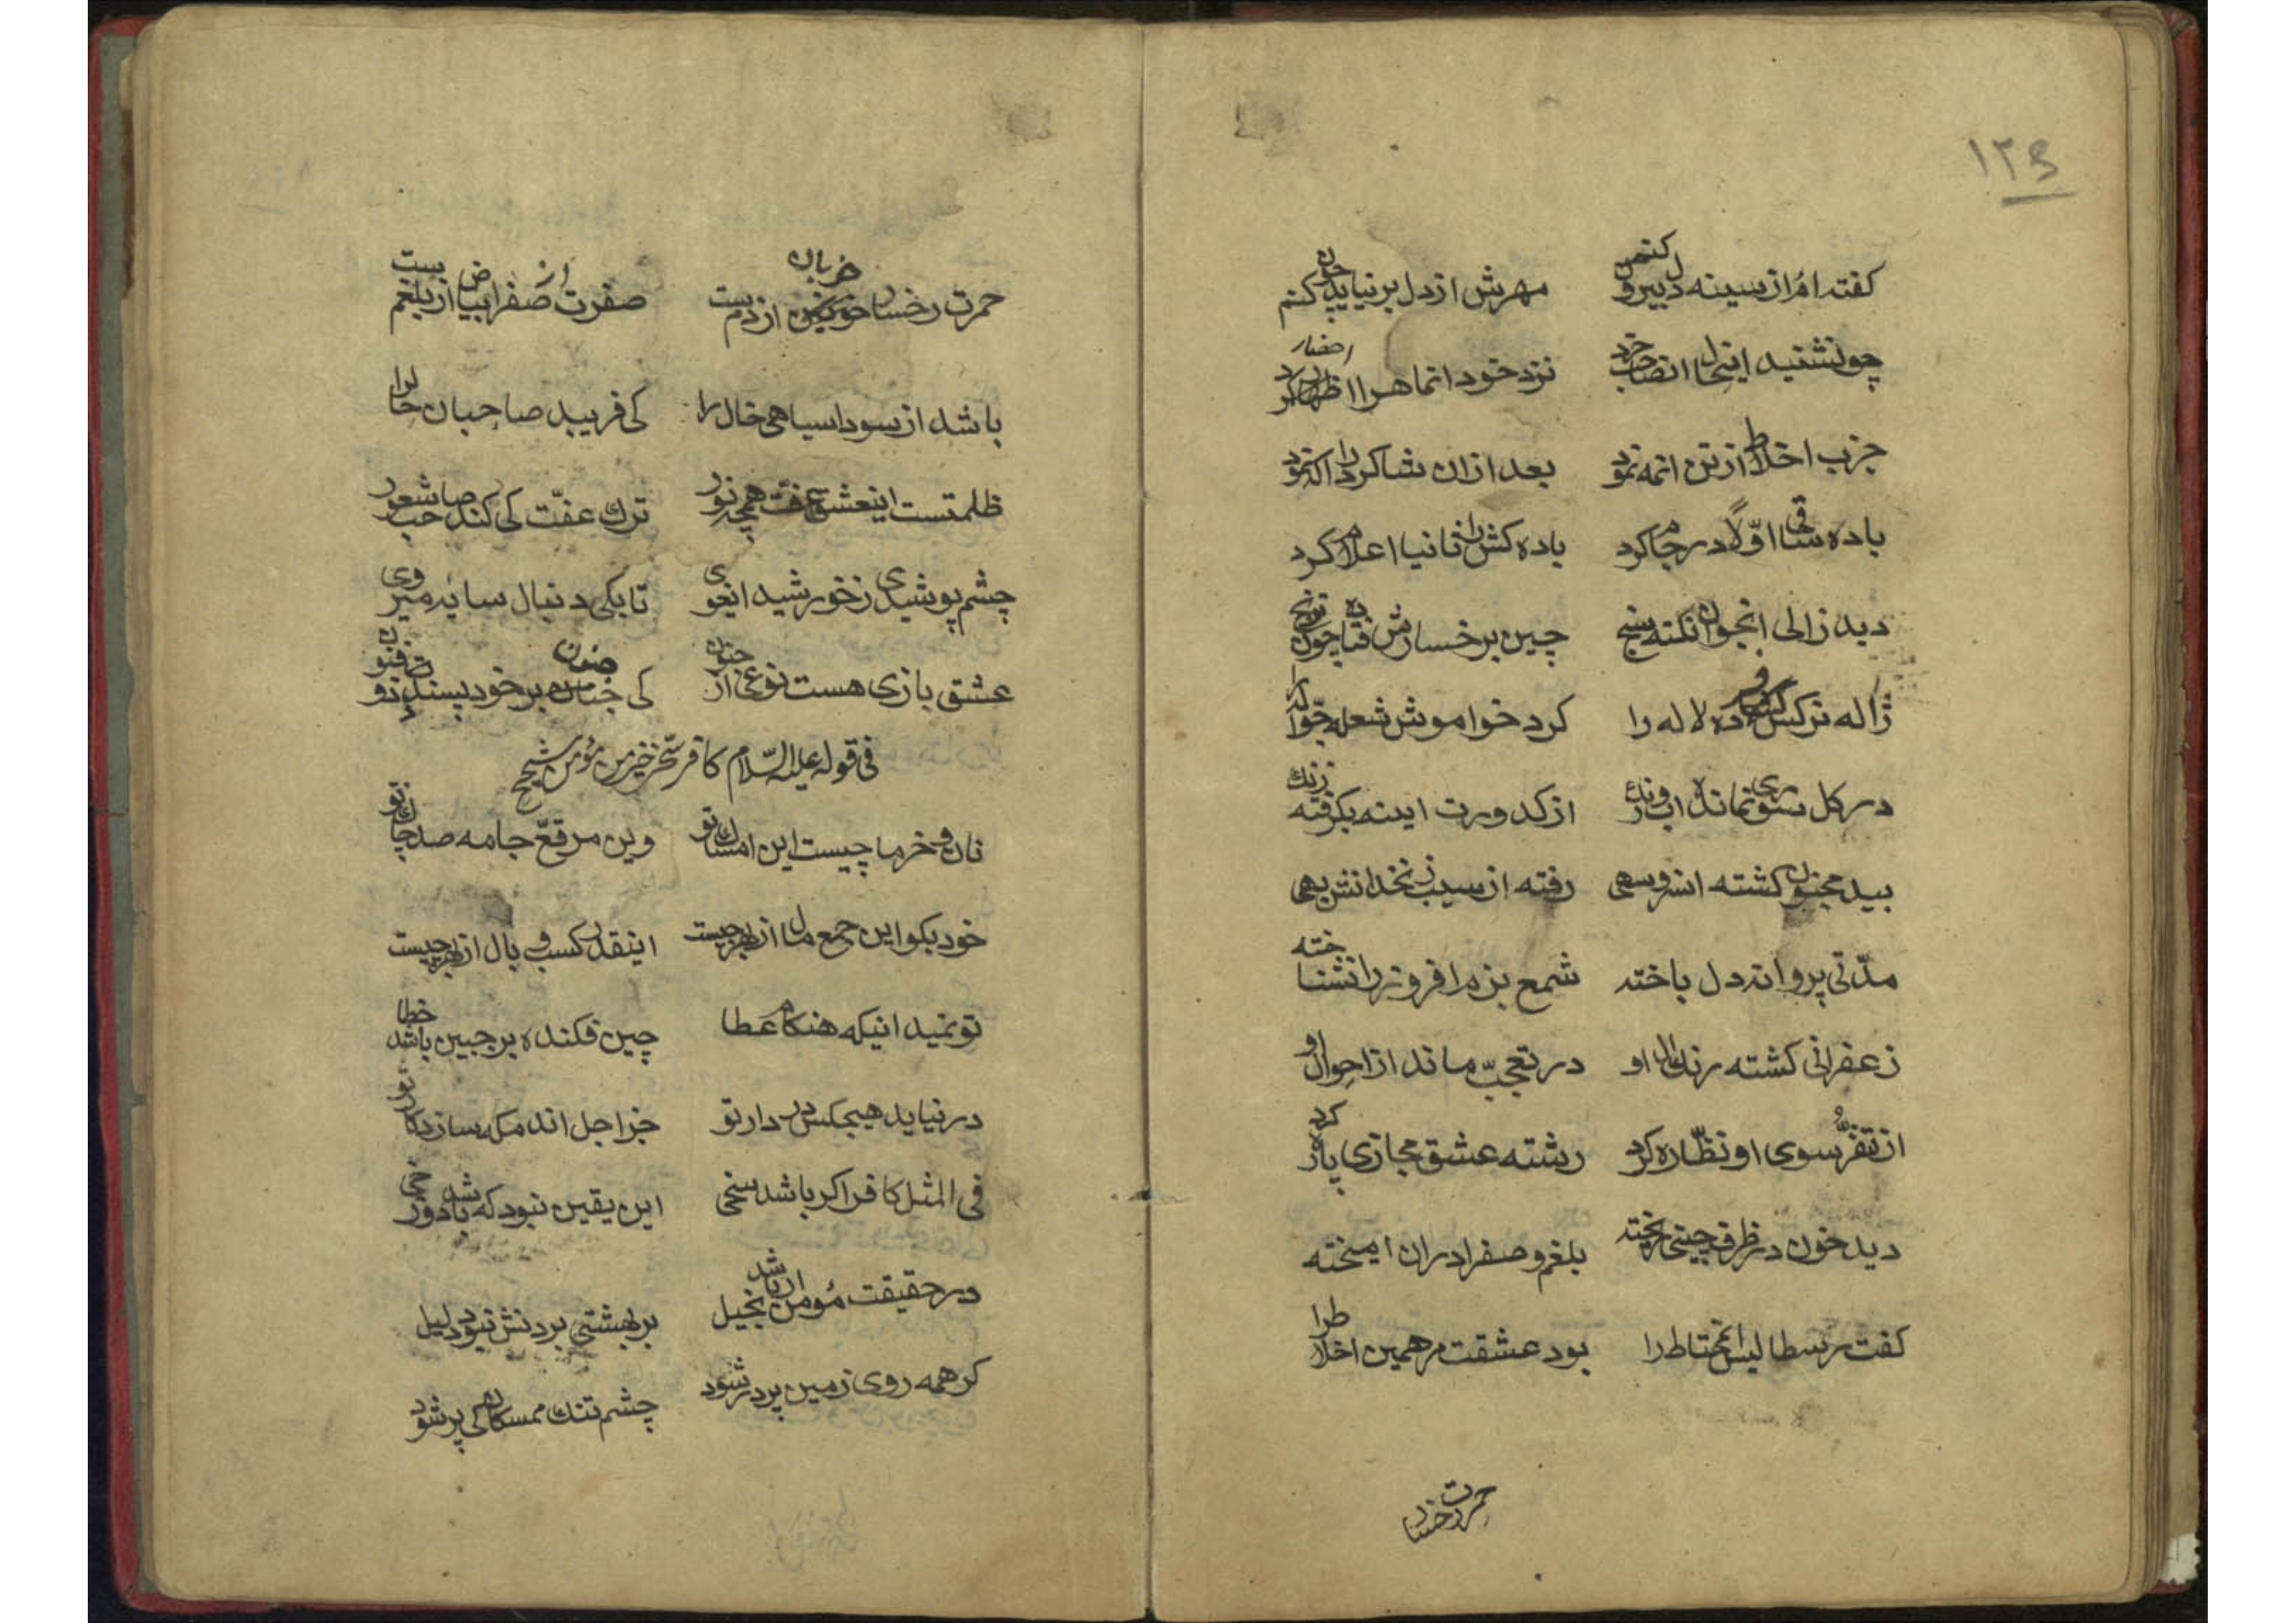 ۱۲۶
گفته ام از سینه دل بیرون کنم مهرش از دل بر نیاید چون کنم
چون شنید اینحال انصاحب خرد نزد خود انماهرا احضار کرد
جزب اخلاط از تن انمه نمود بعد از ان شاکرد را اکه نمود
باده ساقی اوّلاً در جام کرد باده کش را ثانیا اعلام کرد
دید زالی انجوان نکته سنج چین بر خسارش فتاده چون ترنج
ژاله نرکس فسرده لاله را کرد خواموش شعله جوّاله را
در کل سوری نمانده اب و رنک از کدورت اینه بکرفته زنک
بید مجنون کشته انسرو سهی رفته از سیب زنخدانش بهی
مدّتی پروانه دل باخته شمع بزم افروز را نشناخته
زعفرانی کشته رنک ال او در تعجّب ماند از احوال او
از تنفّر سوی او نظّاره کرد رشته عشق مجازی پاره کرد
دید خون در ظرف چینی ریخته بلغم و صفرا دران امیخته
کفت رسطالیس انمحتاط را بود عشقت مر همین اخلاط را
حمرت رخسا
حمرت رخسار خوبان از دم ست صفرت از صفرا بیاض از بلغم ست
باشد از سودا سیاهی خال را کی فریبد صاحبان حال را
ظلمتست اینعشق عفّت همچو نور ترک عفّت کی کند صاحب شعور
چشم پوشیدی ز خورشید ایغوی تا بکی دنبال سایه میروی
عشق بازی هست نوعی از جنون کی جنون بر خود پسندد ذو فنون
فی قوله علیه السّلام کافر سخی خیر من مؤمن شحیح
نان و خرما چیست این امساک تو وین مرقعّ جامه صد چاک تو
خود بکو این جمع مال از بهر چیست اینقدر کسب وبال از بهر چیست
تو نمیدانیکه هنکام عطا چین فکنده بر جبین باشد خطا
در نیاید هیچکس در دار تو جز اجل اندمکه سازد کار تو
فی المثل کافر اکر باشد سخی این یقین نبود که باشد دوزخی
در حقیقت مؤمن ار باشد بخیل بر بهشتی بردنش نبود دلیل
کر همه روی زمین پر در شود چشم تنک ممسکان کی پر شود